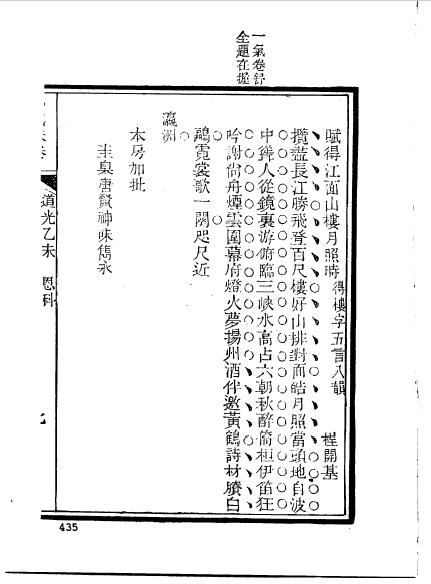 一氣卷舒
全題在握
賦得江面山樓月照時 得樓字五言八韻 程開基
攬盡長江勝飛登百尺樓好山排對面皓月照當頭地自波
中聳人從鏡裏游俯臨三峽水高占六朝秋醉桓伊笛狂
吟謝尚舟煙雲圍幕府燈火夢揚州酒伴邀黃鶴詩材賸白
鷗霓裳歌一闋咫尺近
瀛洲
本房加批
圭臬唐賢神味雋永
道光乙未 恩科
435